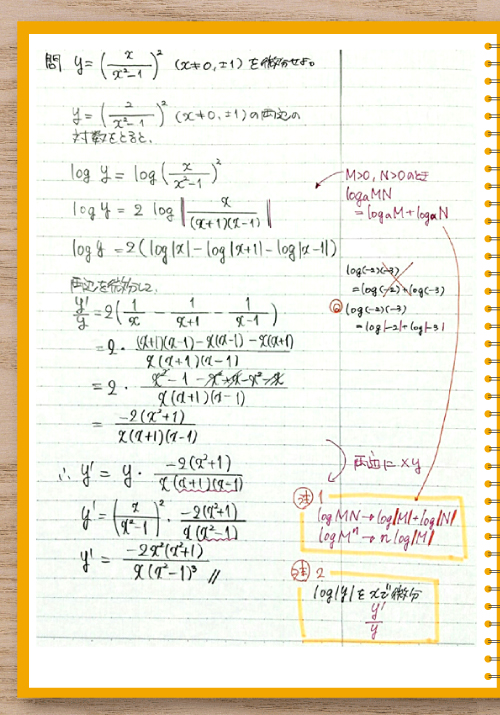 問 y=(x/(x²-1))² (x≠0,±1)を微分せよ。
y=(2/(x²-1))² (x≠0,±1)の両辺の
対数をとると、
log y = log(x/(x²-1))²
log y = 2 log|x/((x+1)(x-1))|
log y = 2(log|x|-log|x+1|-log|x-1|)
両辺を微分して、
y'/y = 2(1/x - 1/(x+1) - 1/(x-1))
= 2・((x+1)(x-1)-x(x-1)-x(x+1))/(x(x+1)(x-1))
= 2・(x²-1-x²+x-x²-x)/(x(x+1)(x-1))
= -2(x²+1)/(x(x+1)(x-1))
∴ y' = y・-2(x²+1)/(x(x+1)(x-1))
y' = (x/(x²-1))²・-2(x²+1)/(x(x²-1))
y' = -2x²(x²+1)/(x(x²-1)³ //
M>0, N>0のとき
logaMN
=logaM+logaN
log(-2)(-3)
=log(-2)+log(-3)
log(-2)(-3)
=log|-2|+log|-3|
両辺に×y
注1
log MN→log|M|+log|N|
log Mⁿ→n log|M|
注2
log|y|をxで微分
y'/y